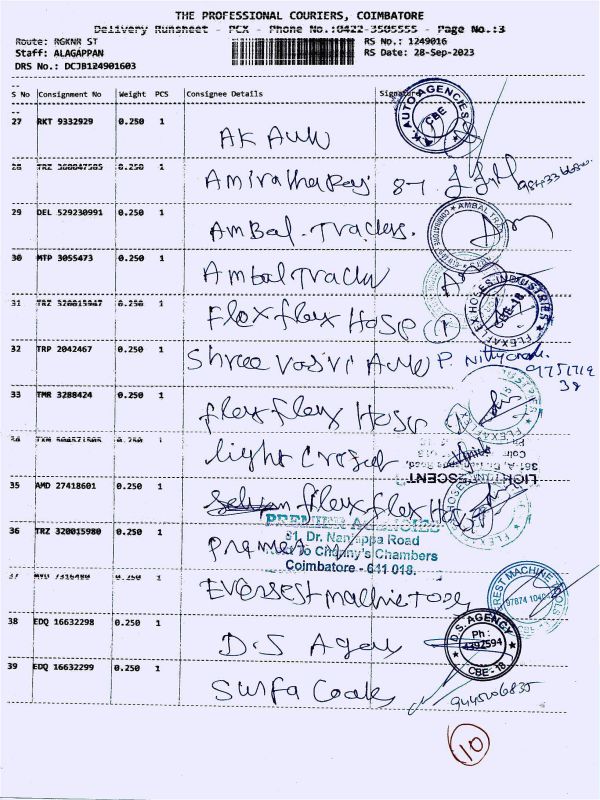 THE PROFESSIONAL COURIERS, COIMBATORE
Delivery Runsheet - PCX - Phone No.:0422-3505555 - Page No.:3
Route: RGKNR ST
RS No.: 1249016
Staff: ALAGAPPAN
RS Date: 28-Sep-2023
DRS No.: DCJB124901603
S No Consignment No Weight PCS Consignee Details Signature
27 RKT 9332929 0.250 1
AK Auto
A.K. AUTO AGENCIES CBE
28 TRZ 0.250 1
87
29 DEL 529230991 0.250 1
AmBal. Traders.
AMBAL TRADERS
30 MTP 3055473 0.250 1
Ambal Trader
31 TRZ 320015947 0.250 1
Flexflex Hosp 1
FLEXAFLEX HOSES INDUSTRIES CBE-18
32 TRP 2042467 0.250 1
Shree Vasivi Auto
P.
9751719
38
33 TMR 3288424 0.250 1
flexflex Hosp
34 0.250 1
light Cresent
LIGHT CRESCENT
35 AMD 27418601 0.250 1
flexflex Hosp
36 TRZ 320015980 0.250 1
Premier
PREMIER AGENCIES
81, Dr. Nanjappa Road
Next to Channy's Chambers
Coimbatore - 641 018.
37 0.250 1
Everest machine Tools
EVEREST MACHINE TOOLS
38 EDQ 16632298 0.250 1
D.S Agency
D.S. AGENCY
Ph :
4392594
CBE-18
39 EDQ 16632299 0.250 1
Surfa Coats
9445206835
10